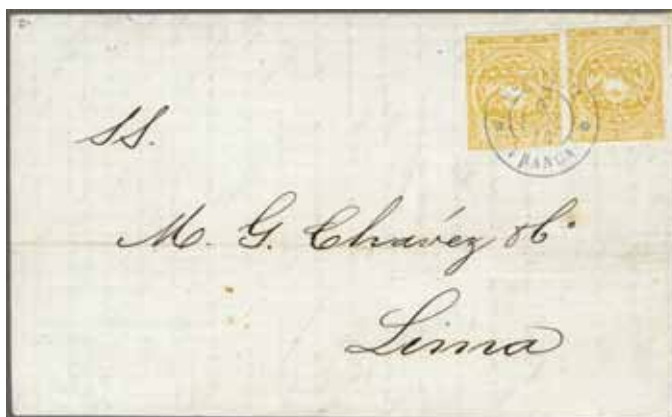 FRANCA
SS.
M. G. Chavéz &Cª
Lima